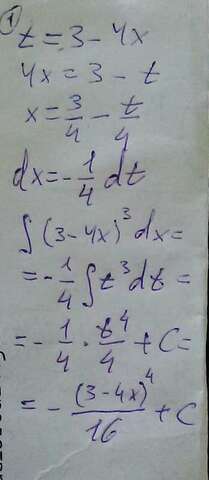 1
t = 3 - 4x
4x = 3 - t
x = 3/4 - t/4
dx = -1/4 dt
∫(3-4x)³ dx =
= -1/4 ∫t³dt =
= -1/4 · t⁴/4 + C =
= -(3-4x)⁴/16 + C